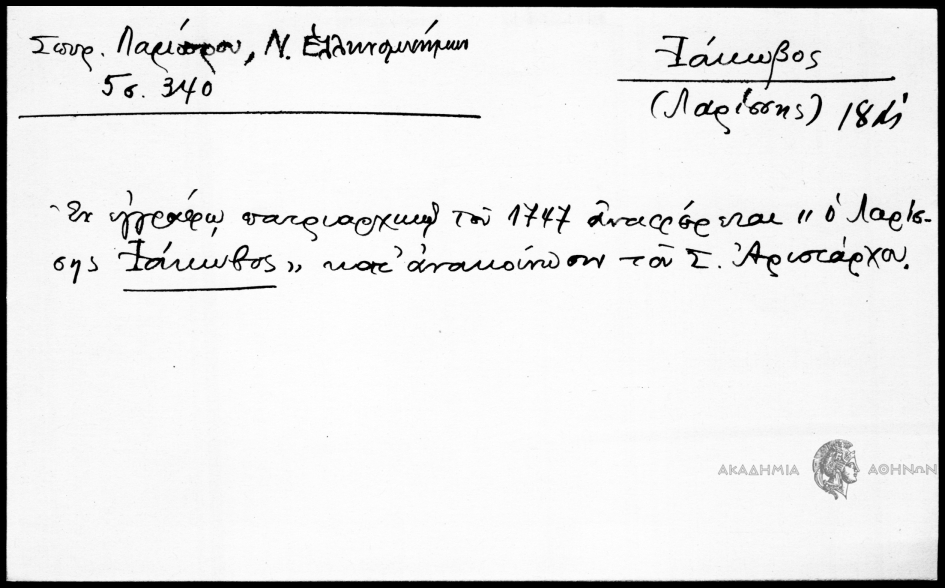 Σπυρ. Λάμπρου, Ν. Ἑλληνομνήμων
5 σ. 340
Ἰάκωβος
(Λαρίσσης) 18
Ἐν ἐγγράφῳ πατριαρχικῷ τοῦ 1747 ἀναφέρεται „ ὁ Λαρίσ-
σης Ἰάκωβος „ κατ' ἀνακοίνωσιν τοῦ Σ. Ἀριστάρχου.
ΑΚΑΔΗΜΙΑ ΑΘΗΝΩΝ